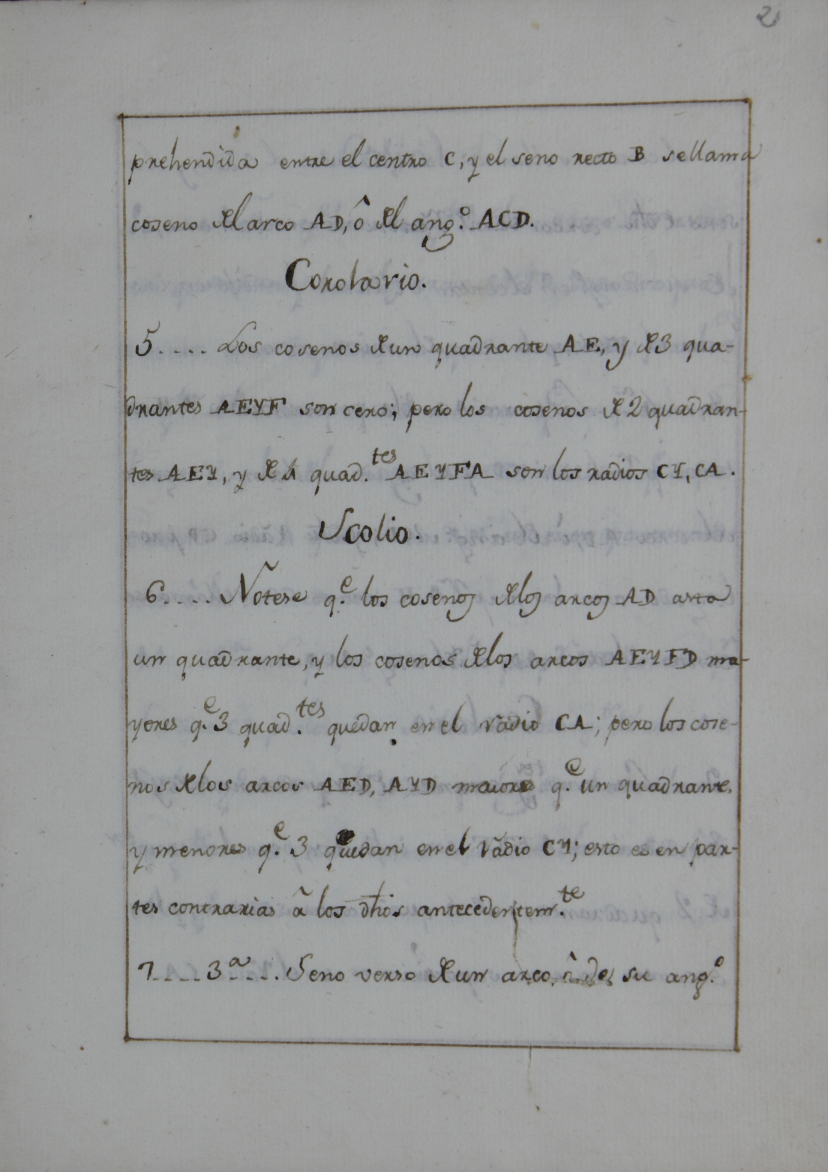 2
prehendida entre el centro C, y el seno recto B se llama
coseno del arco AD, ô del ang.º ACD.
Corolario.
5.... Los cosenos de un quadrante AE, y de 3 qua-
drantes AEYF son cero; pero los cosenos de 2 quadran-
tes AEY, y de 4 quad.tes AEYFA son los radios CY, CA.
Scolio.
6.... Nòtese q.e los cosenos de los arcos AD asta
un quadrante, y los cosenos de los arcos AEYFD ma-
yores q.e 3 quad.tes quedan en el radio CA; pero los cose-
nos de los arcos AED, AYD maiores q.e un quadrante,
y menores q.e 3 quedan en el radio CY; esto es en par-
tes contrarias â los dhos antecedentem.te
7.... 3ª.... Seno verso de un arco, ô de su ang.º